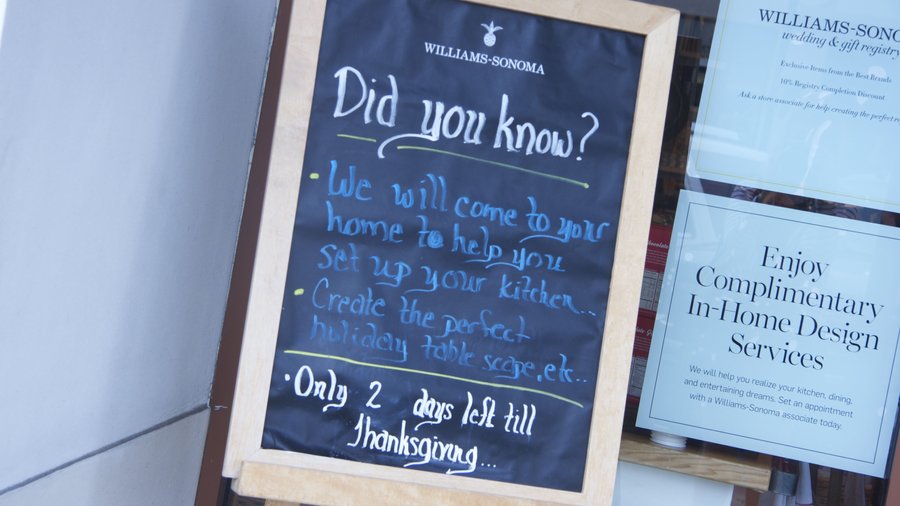 WILLIAMS-SONOMA
Did you know?
• We will come to your
home to help you
set up your kitchen...
• Create the perfect
holiday table scape, etc..
• Only 2 days left till
Thanksgiving...
WILLIAMS-SONO
wedding & gift registry
Exclusive Items from the Best Brands
10% Registry Completion Discount
Ask a store associate for help creating the perfect
Enjoy
Complimentary
In-Home Design
Services
We will help you realize your kitchen, dining,
and entertaining dreams. Set an appointment
with a Williams-Sonoma associate today.